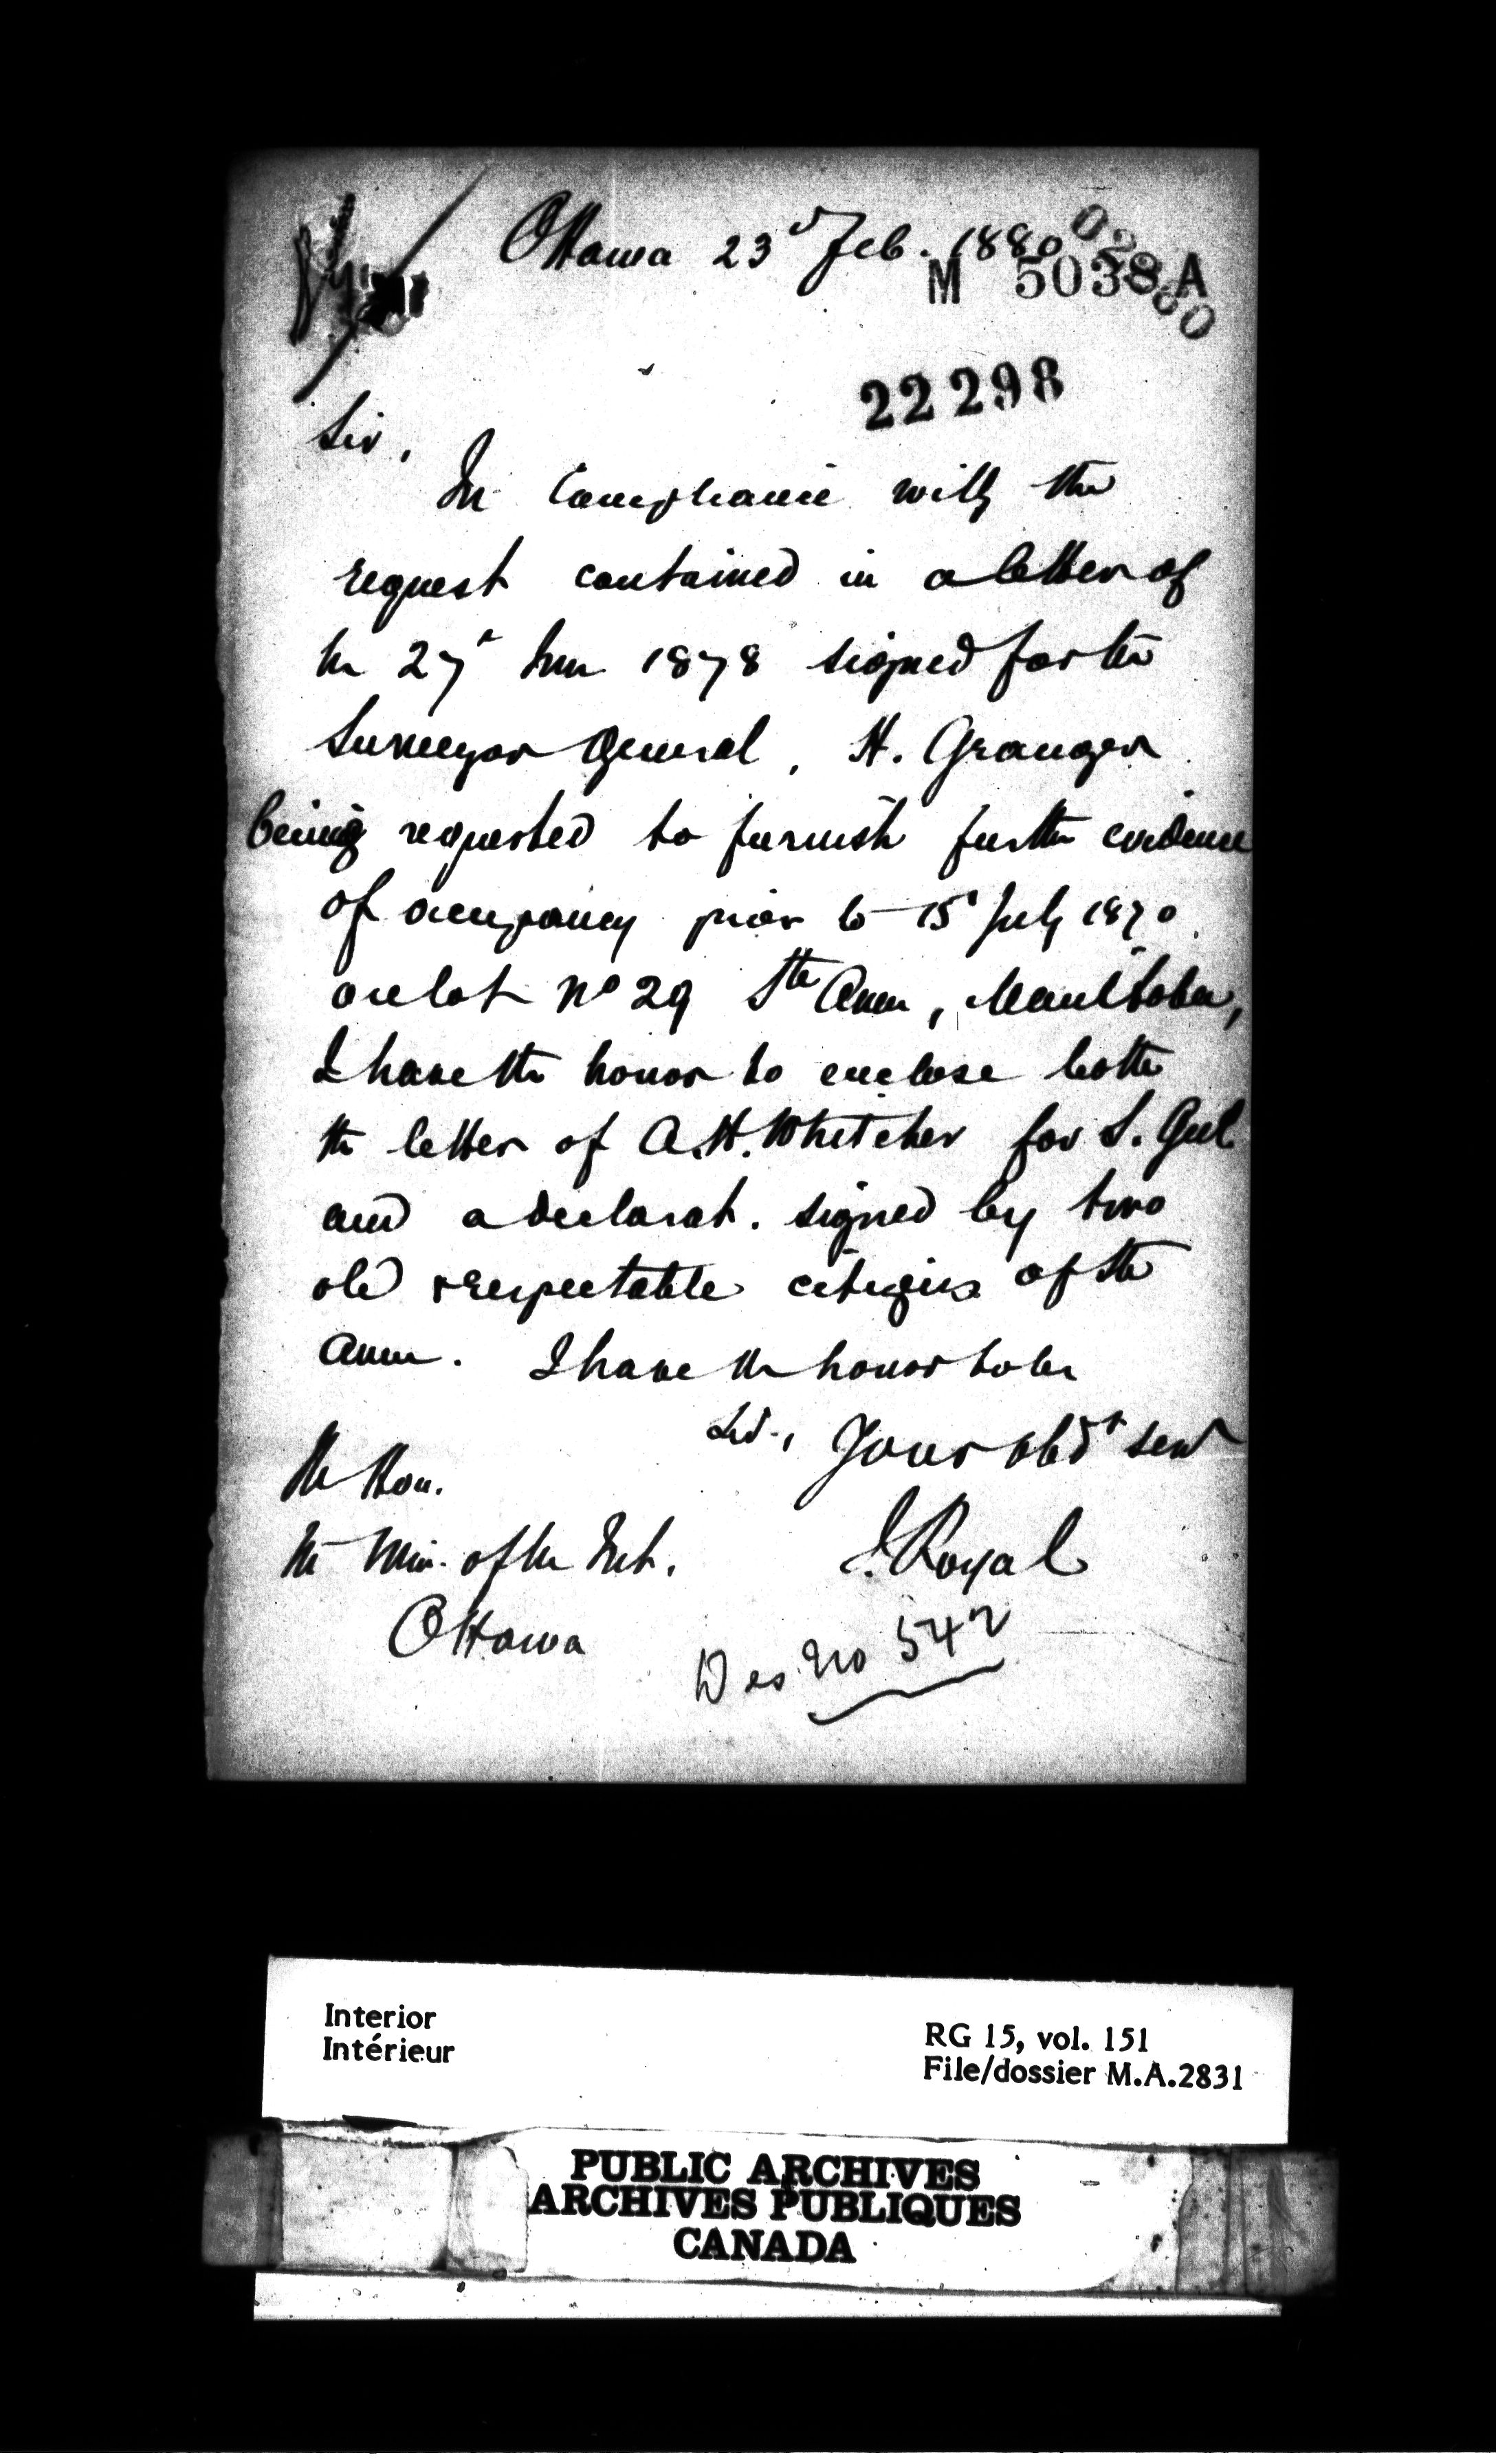 Ottawa 23d Feb. 1880
M 5038 A
22298
Sir,
In Compliance with the
request contained in a letter of
the 27th 1878 signed for the
Surveyor General, H. Granger
being requested to furnish further evidence
of occupancy prior to 15t July 1870
on lot No 29 Ste Anne, Manitoba,
I have the honor to enclose both
the letter of A.H. Whitcher for S. Gnl
and a declarat. signed by two
old respectable citizens of Ste
Anne. I have the honor to be
Sir, Your obdt servt
The Hon.
the Min. of the Int.
J. Royal
Ottawa
Des No 542
Interior
Intérieur
RG 15, vol. 151
File/dossier M.A.2831
PUBLIC ARCHIVES
ARCHIVES PUBLIQUES
CANADA